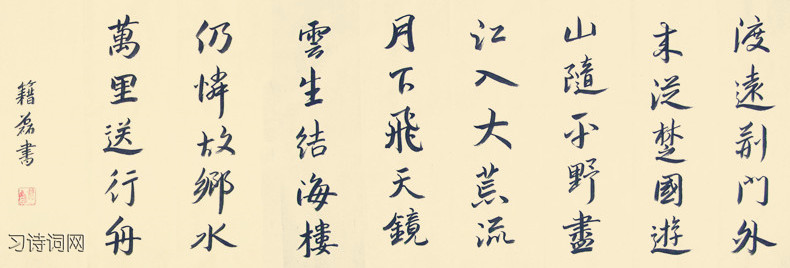 渡遠荊門外
来從楚國遊
山隨平野盡
江入大荒流
月下飛天鏡
雲生結海樓
仍憐故鄉水
萬里送行舟
籍磊書
习诗词网